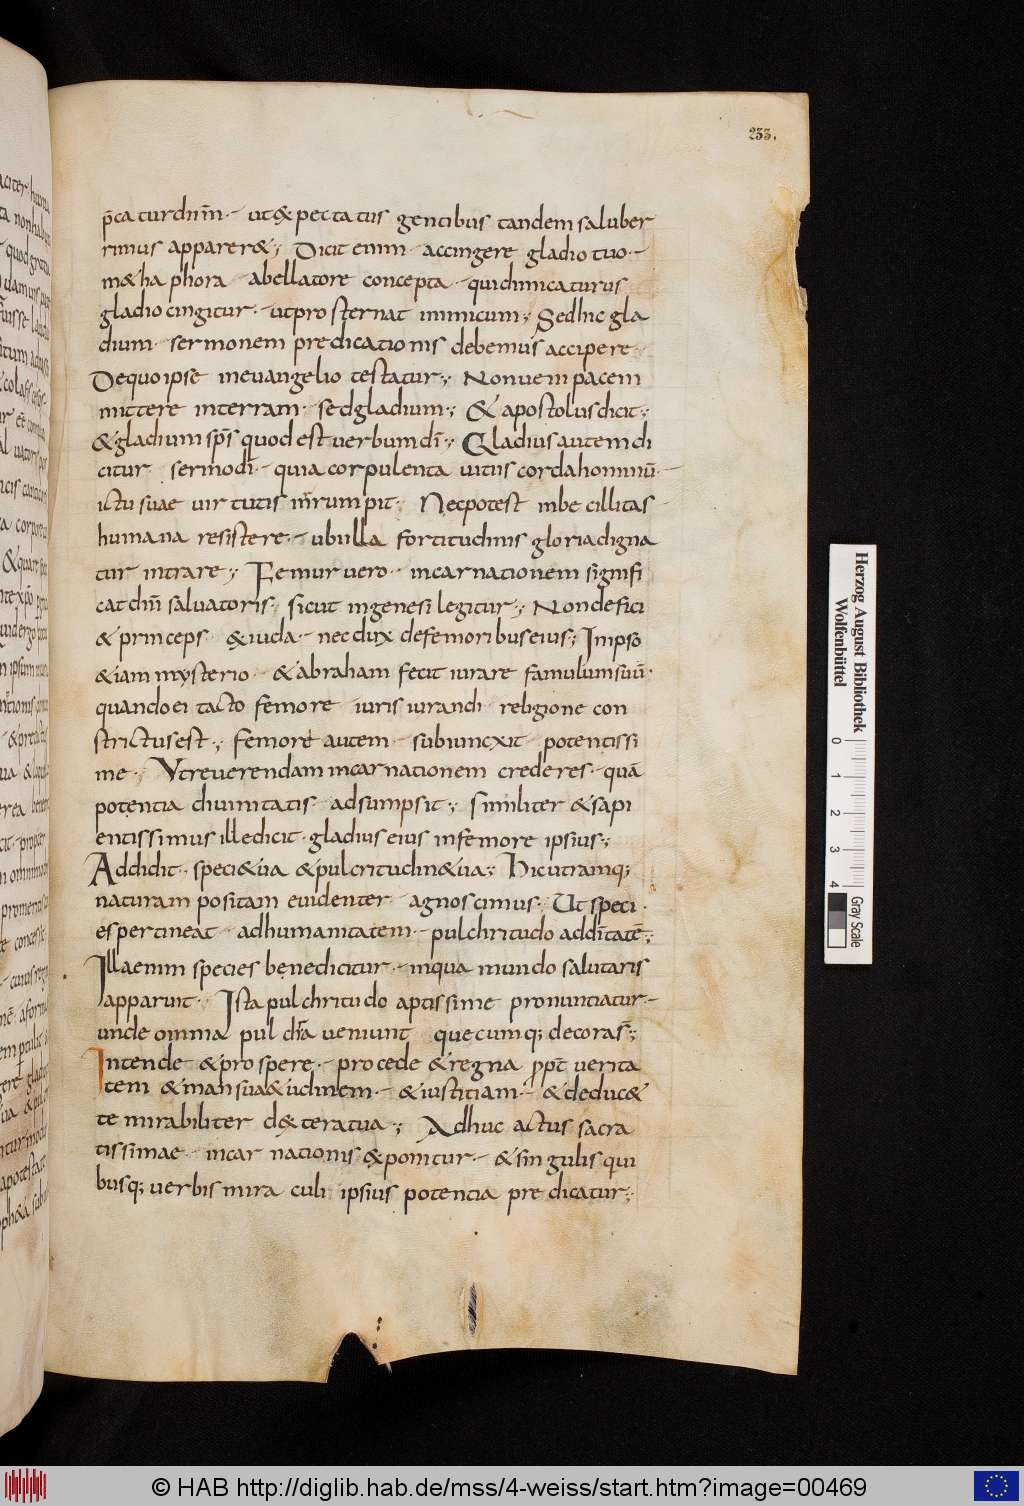 233.
p̄catur dn̄m · ut & pectatus gentibus tandem saluber
rimus apparer& ; Dicit enim · accingere gladio tuo ·
m&haphora · a bellatore concepta · qui dimicaturus
gladio cingitur · ut prosternat inimicum ; Sed hic gla
dium · sermonem predicationis debemus accipere ·
De quo ipse in evangelio testatur ; Non veni pacem
mittere in terram · sed gladium ; & apostolus dicit ;
& gladium sp̄s quod est verbum dī ; Gladius autem di
citur sermo dī · quia corpulenta vitiis corda hominū ·
ictu suae virtutis inrumpit · Nec potest inbecillitas
humana resistere · ubi illa fortitudinis gloria digna
tur intrare ; Femur vero · incarnationem signifi
cat dn̄i salvatoris · sicut in genesi legitur ; Non defici
& princeps & iuda · nec dux de femoribus eius ; In ipso
&iam mysterio · & abraham fecit iurare famulum suū ·
quando ei tacto femore iuris iurandi religione con
strictus est ; femore autem · subiuncxit potentissi
me · Ut reverendam incarnationem crederes · quā
potentia divinitatis adsumpsit ; similiter & sapi
entissimus ille dicit · gladius eius in femore ipsius ;
Addidit · speci& ua & pulcritudin& ua ; Hic utramq;
naturam positam evidenter agnoscimus · Ut speci
es pertineat · ad humanitatem · pulchritudo ad dēitatē ;
Illa enim species benedicitur · in qua mundo salutaris
apparuit · Ista pulchritudo aptissime pronuntiatur ·
unde omnia pulchra veniunt quecumq; decora s̄ ;
Intende & prospere · procede & regna p̱pt̄ verita
tem & mansua&udinem · & iustitiam · & deduc&
te mirabiliter d&tera tua ; Adhuc actus sacra
tissimae incarnationis &ponitur · & singulis qui
busq; verbis miraculi ipsius potentia predicatur ;
Herzog August Bibliothek
Wolfenbüttel
0 1 2 3 4
Gray Scale
© HAB http://diglib.hab.de/mss/4-weiss/start.htm?image=00469